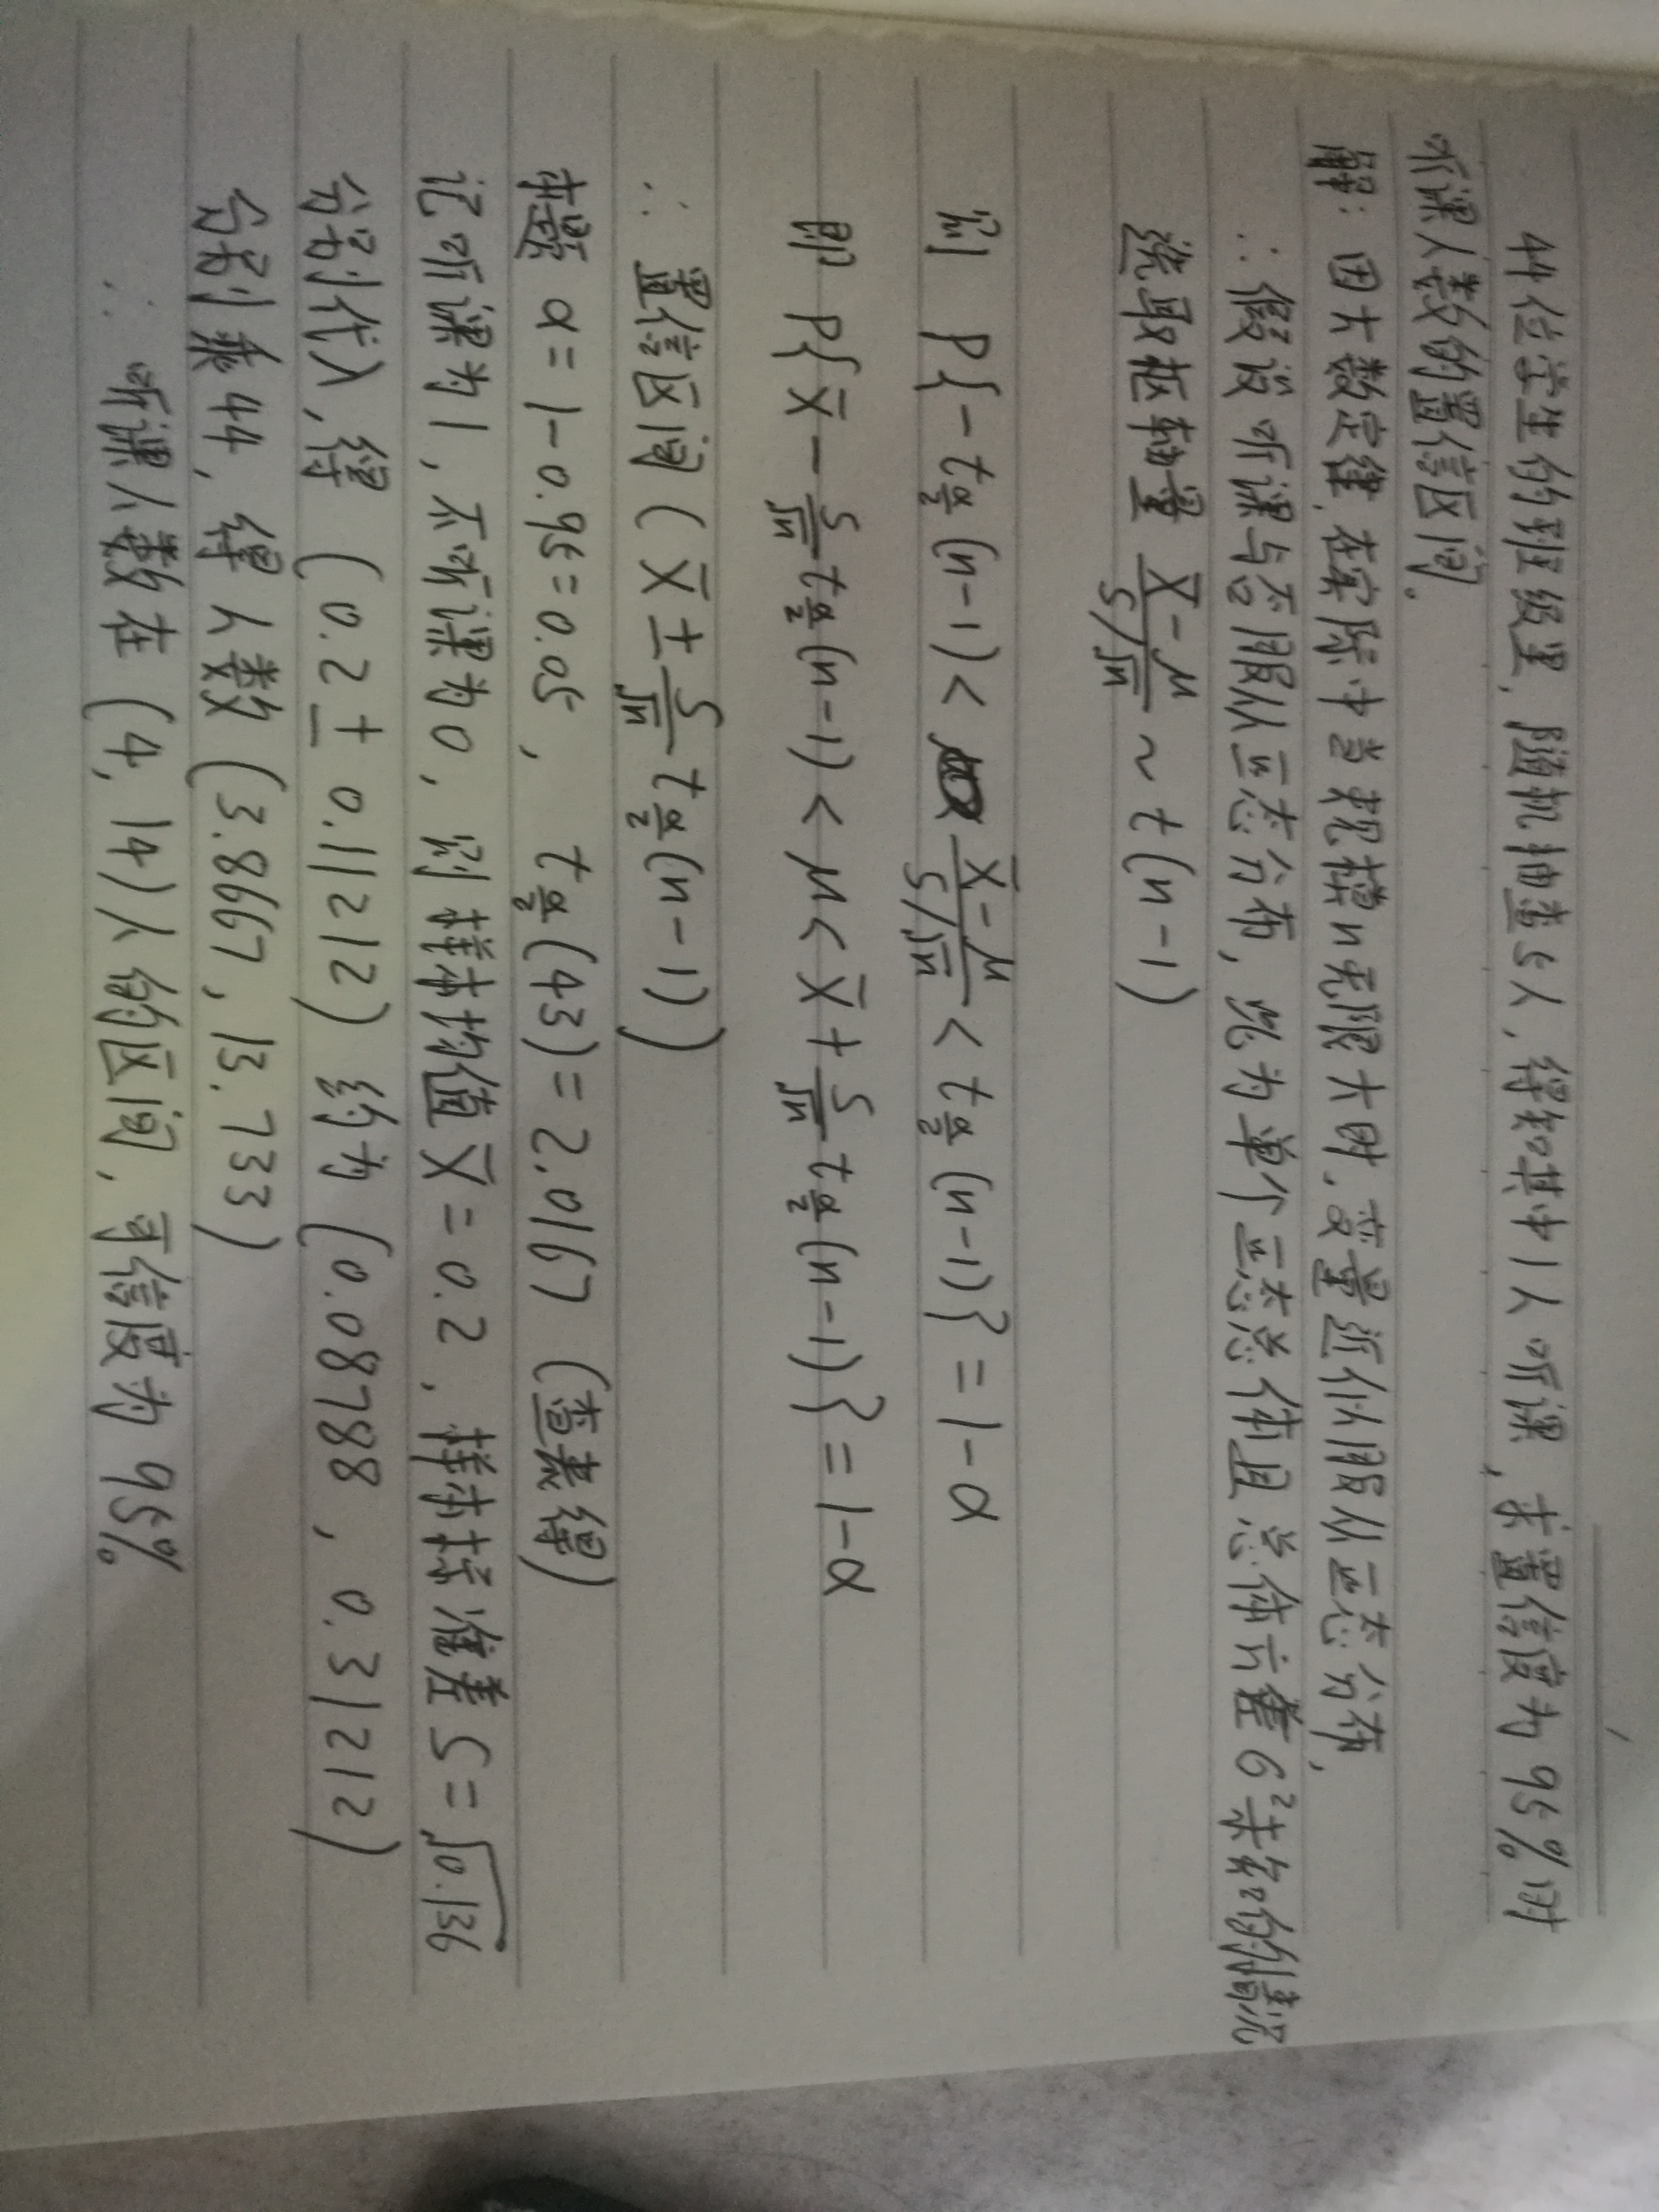 44位学生的班级里,随机抽查5人,得知其中1人听课,求置信度为95%时
听课人数的置信区间.
解:因大数定律,在实际中当规模n无限大时,变量近似服从正态分布,
∴假设听课与否服从正态分布,此为单个正态总体且总体方差σ²未知的情况
选取枢轴量 (X̄-μ)/(S/√n) ~ t(n-1)
则 P{-t_{α/2}(n-1) < (X̄-μ)/(S/√n) < t_{α/2}(n-1)} = 1-α
即 P{X̄ - S/√n t_{α/2}(n-1) < μ < X̄ + S/√n t_{α/2}(n-1)} = 1-α
∴ 置信区间 (X̄ ± S/√n t_{α/2}(n-1))
本题 α=1-0.95=0.05, t_{α/2}(43)=2.0167 (查表得)
记听课为1,不听课为0,则样本均值X̄=0.2,样本标准差S=√0.136
分别代入,得 (0.2±0.11212) 约为 (0.08788, 0.31212)
分别乘44,得人数(3.8667, 13.733)
∴ 听课人数在(4,14)人的区间,可信度为95%